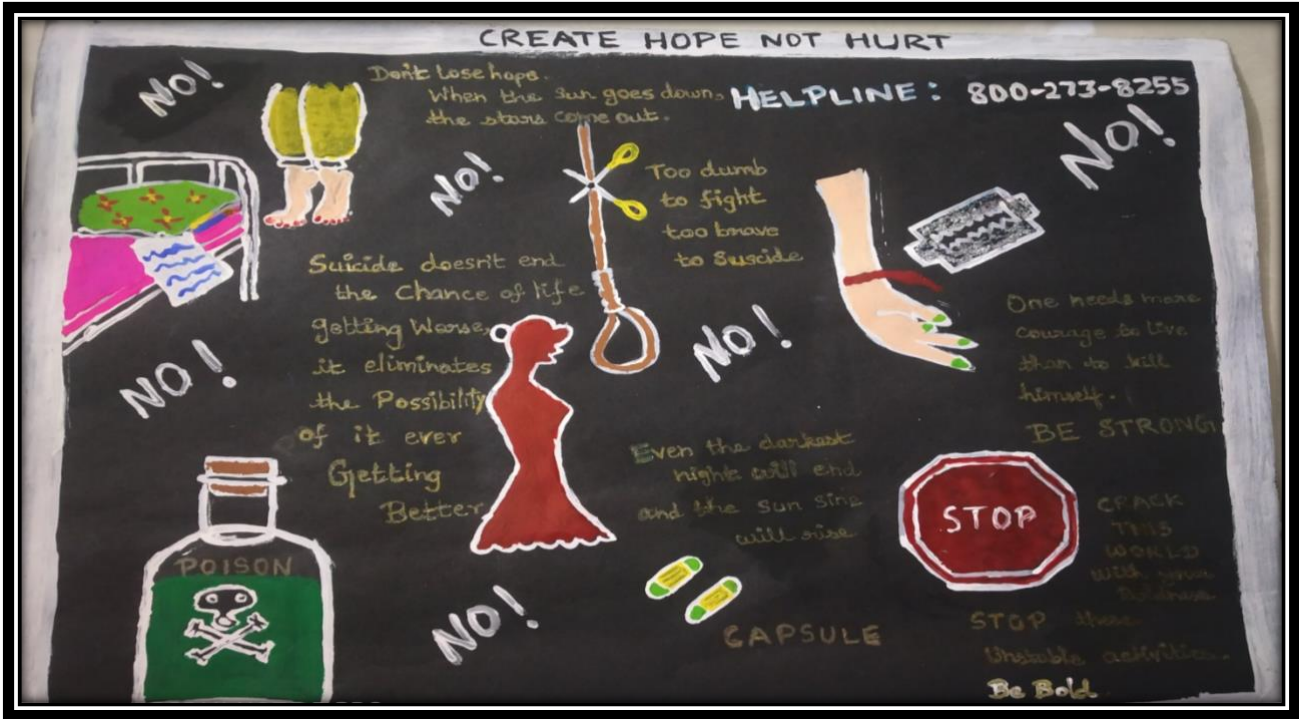 CREATE HOPE NOT HURT
NO!
Don't Lose hope.
When the Sun goes down,
the stars come out.
HELPLINE: 800-273-8255
NO!
NO!
Too dumb
to fight
too brave
to Suscide
Suicide doesn't end
the Chance of life
getting Worse,
it eliminates
the Possibility
of it ever
Getting
Better
NO!
NO!
One needs more
courage to live
than to kill
himself.
BE STRONG
Even the darkest
nights will end
and the sun sine
will rise.
STOP
CRACK
THIS
WORLD
with your
Boldness
POISON
NO!
CAPSULE
STOP these
Unstable activities.
Be Bold